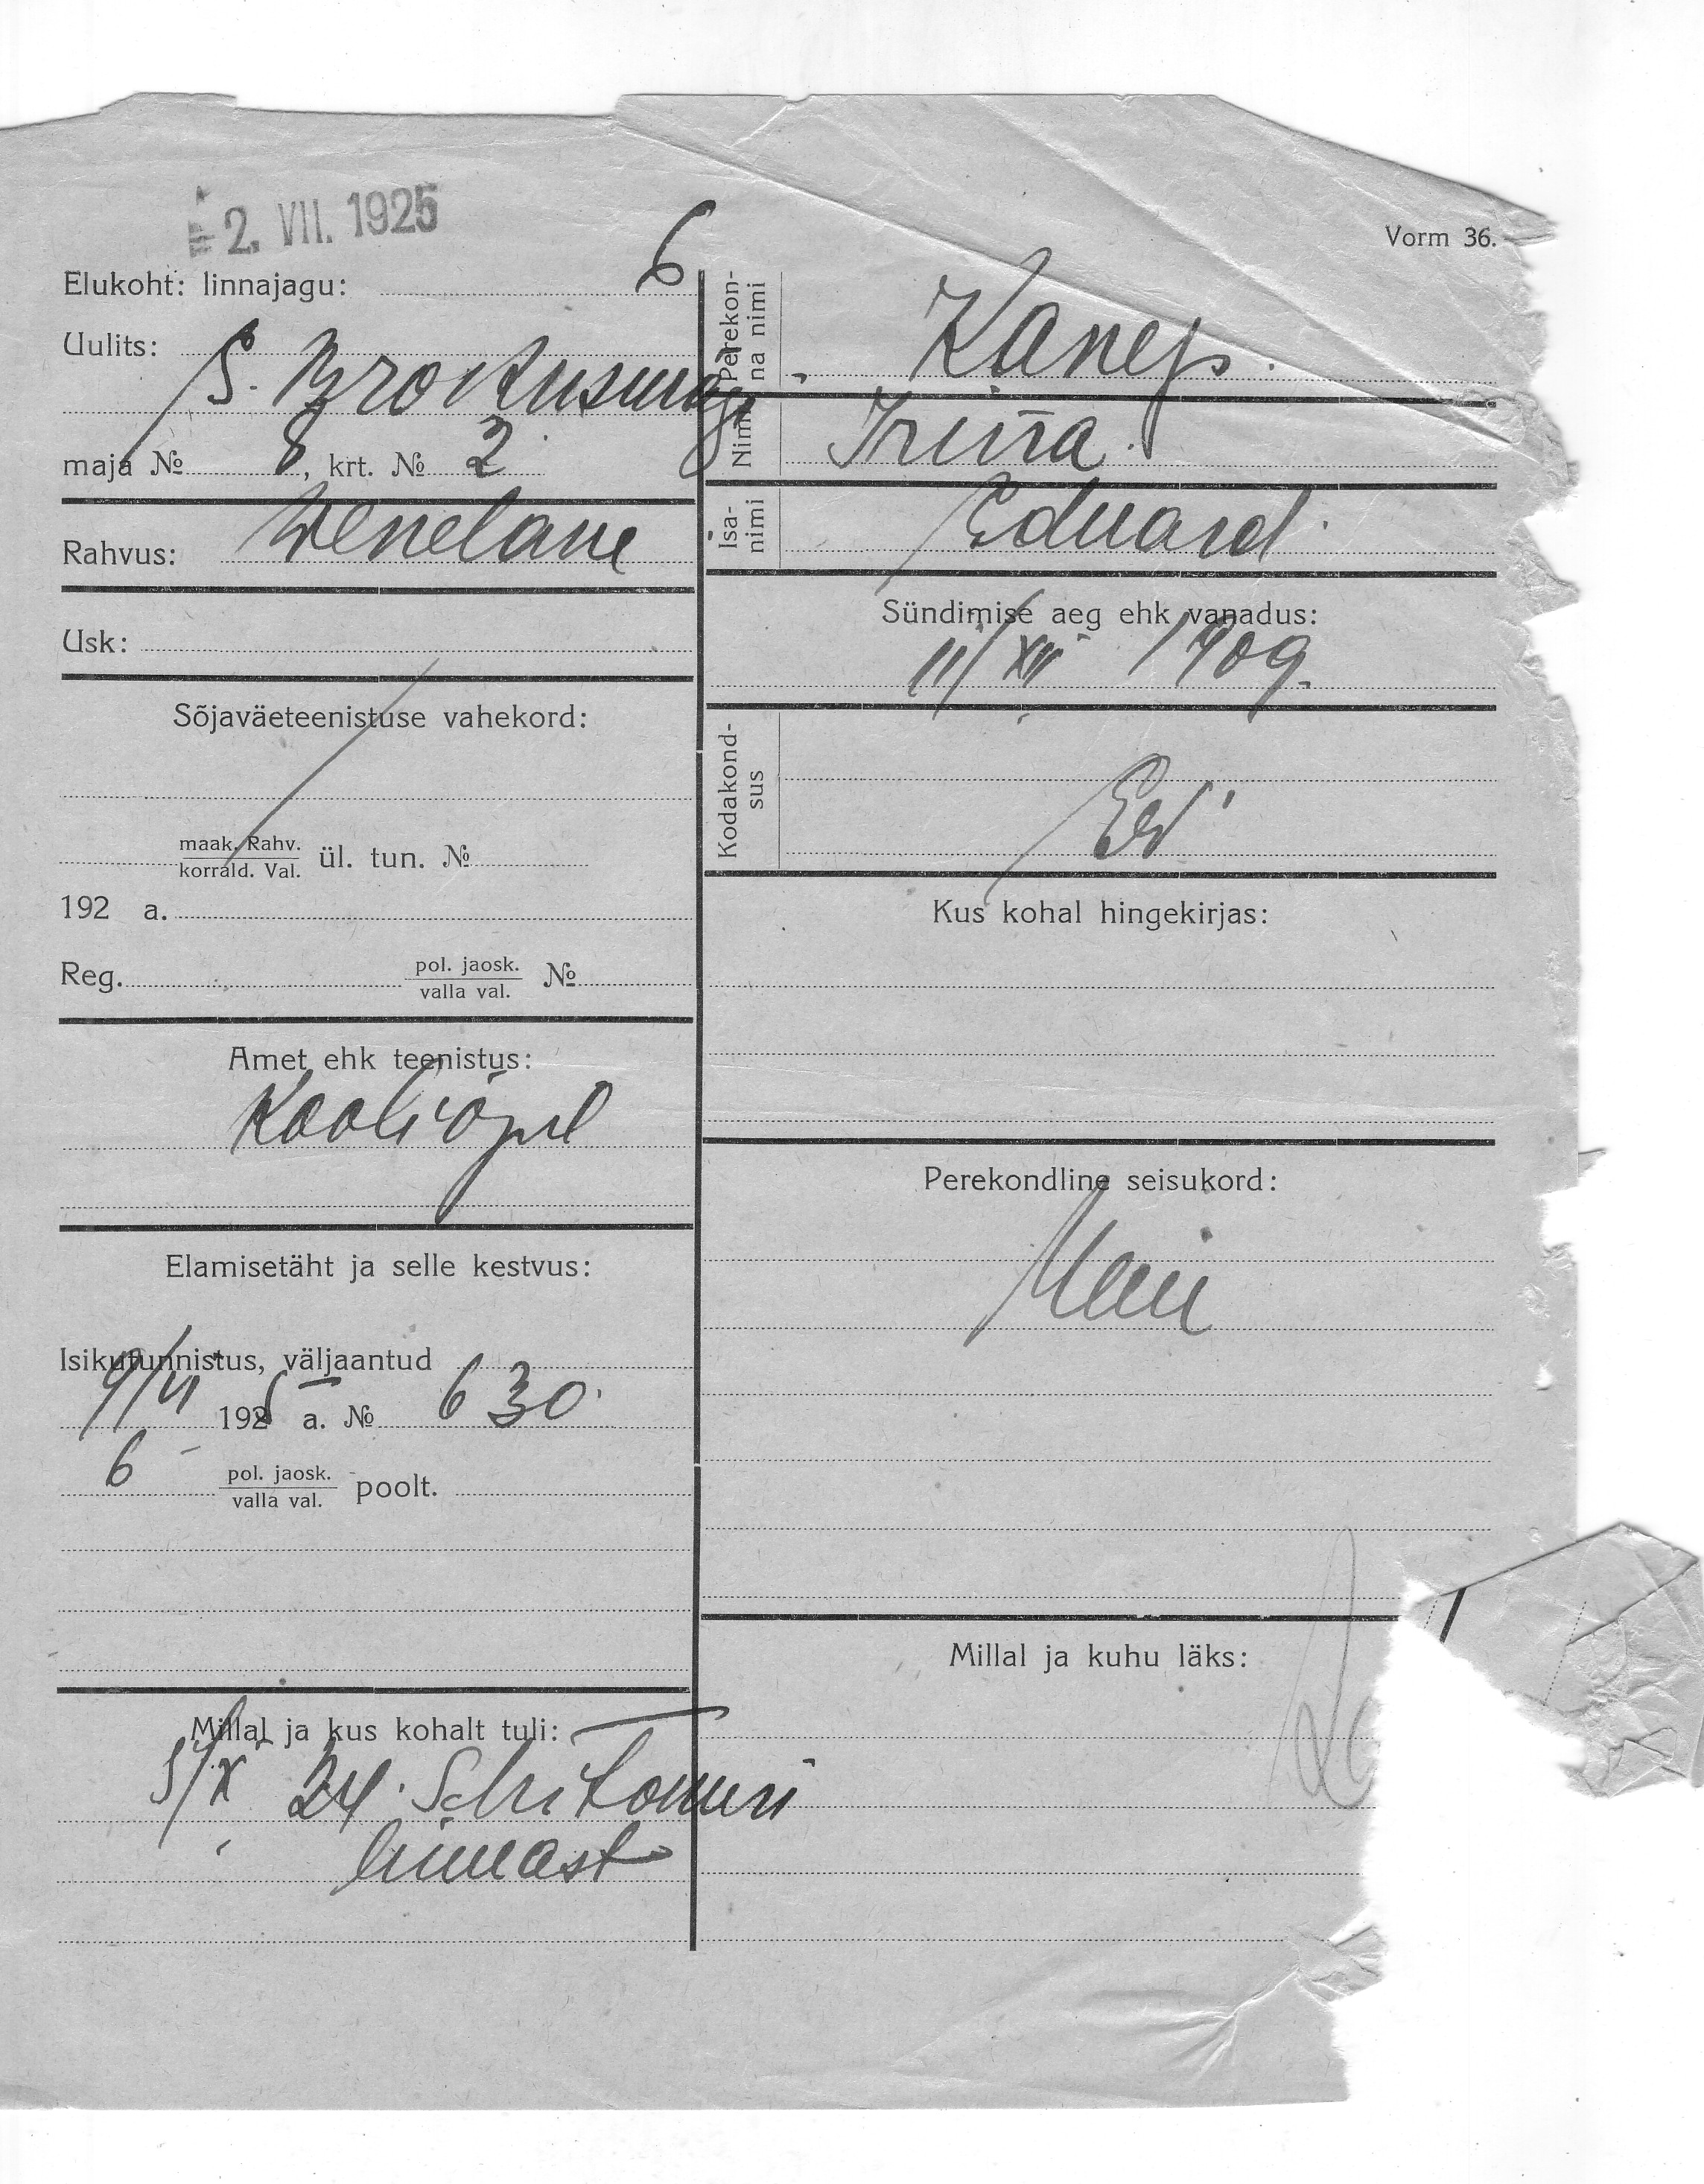 2. VII. 1925
Vorm 36.
Elukoht: linnajagu: 6
Uulits: S. Brokusmägi
maja № 8, krt. № 2
Rahvus: Wenelane
Usk:
Sõjaväeteenistuse vahekord:
maak. Rahv.
korrald. Val. ül. tun. №
192 a.
Reg. pol. jaosk. №
valla val.
Amet ehk teenistus:
Kooliõpil
Elamisetäht ja selle kestvus:
Isikutunnistus, väljaantud
9/VI 1925 a. № 630
6 pol. jaosk. poolt.
valla val.
Millal ja kus kohalt tuli:
5/X 24. Schitomiri
linnast
Perekon-
na nimi Kanep.
Nimi Irina.
Isa-
nimi Eduard
Sündimise aeg ehk vanadus:
11/XII 1909.
Kodakond-
sus Esti
Kus kohal hingekirjas:
Perekondline seisukord:
Millal ja kuhu läks: